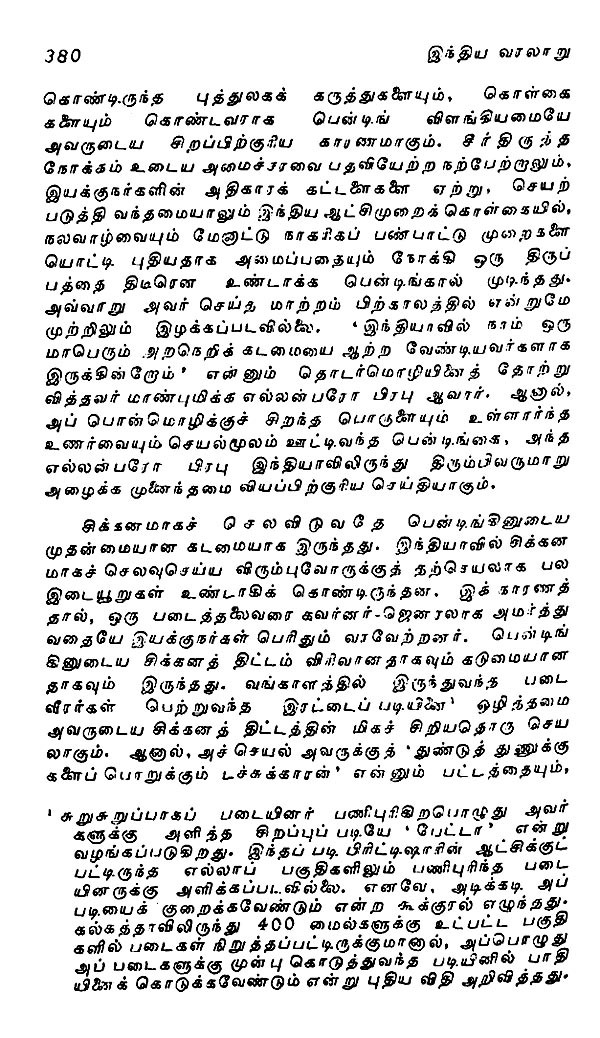 380 இந்திய வரலாறு
கொண்டிருந்த புத்துலகக் கருத்துகளையும், கொள்கை
களையும் கொண்டவராக பென்டிங் விளங்கியமையே
அவருடைய சிறப்பிற்குரிய காரணமாகும். சீர்திருந்த
நோக்கம் உடைய அமைச்சரவை பதவியேற்ற நற்பேற்றாலும்,
இயக்குநர்களின் அதிகாரக் கட்டளைகளை ஏற்று, செயற்
படுத்தி வந்தமையாலும் இந்திய ஆட்சிமுறைக் கொள்கையில்,
நலவாழ்வையும் மேனாட்டு நாகரிகப் பண்பாட்டு முறைகளை
யொட்டி புதியதாக அமைப்பதையும் நோக்கி ஒரு திருப்
பத்தை திடீரென உண்டாக்க பென்டிங்கால் முடிந்தது.
அவ்வாறு அவர் செய்த மாற்றம் பிற்காலத்தில் என்றுமே
முற்றிலும் இழக்கப்படவில்லை. ‘இந்தியாவில் நாம் ஒரு
மாபெரும் அறநெறிக் கடமையை ஆற்ற வேண்டியவர்களாக
இருக்கின்றோம்’ என்னும் தொடர்மொழியினைத் தோற்று
வித்தவர் மாண்புமிக்க எல்லன்பரோ பிரபு ஆவார். ஆனால்,
அப் பொன்மொழிக்குச் சிறந்த பொருளையும் உள்ளார்ந்த
உணர்வையும் செயல்மூலம் ஊட்டிவந்த பென்டிங்கை, அந்த
எல்லன்பரோ பிரபு இந்தியாவிலிருந்து திரும்பிவருமாறு
அழைக்க முனைந்தமை வியப்பிற்குரிய செய்தியாகும்.
சிக்கனமாகச் செலவிடுவதே பென்டிங்கினுடைய
முதன்மையான கடமையாக இருந்தது. இந்தியாவில் சிக்கன
மாகச் செலவுசெய்ய விரும்புவோருக்குத் தற்செயலாக பல
இடையூறுகள் உண்டாகிக் கொண்டிருந்தன. இக் காரணத்
தால், ஒரு படைத்தலைவரை கவர்னர்-ஜெனரலாக அமர்த்து
வதையே இயக்குநர்கள் பெரிதும் வரவேற்றனர். பென்டிங்
கினுடைய சிக்கனத் திட்டம் விரிவானதாகவும் கடுமையான
தாகவும் இருந்தது. வங்காளத்தில் இருந்துவந்த படை
வீரர்கள் பெற்றுவந்த இரட்டைப் படியினை¹ ஒழித்தமை
அவருடைய சிக்கனத் திட்டத்தின் மிகச் சிறியதொரு செய
லாகும். ஆனால், அச் செயல் அவருக்குத் ‘துண்டுத் துணுக்கு
களைப் பொறுக்கும் டச்சுக்காரன்’ என்னும் பட்டத்தையும்,
¹ சுறுசுறுப்பாகப் படையினர் பணிபுரிகிறபொழுது அவர்
களுக்கு அளித்த சிறப்புப் படியே ‘பேட்டா’ என்று
வழங்கப்படுகிறது. இந்தப் படி பிரிட்டிஷாரின் ஆட்சிக்குட்
பட்டிருந்த எல்லாப் பகுதிகளிலும் பணிபுரிந்த படை
யினருக்கு அளிக்கப்படவில்லை. எனவே, அடிக்கடி அப்
படியைக் குறைக்கவேண்டும் என்ற கூக்குரல் எழுந்தது.
கல்கத்தாவிலிருந்து 400 மைல்களுக்கு உட்பட்ட பகுதி
களில் படைகள் நிறுத்தப்பட்டிருக்குமானால், அப்பொழுது
அப் படைகளுக்கு முன்பு கொடுத்துவந்த படியினில் பாதி
யினைக் கொடுக்கவேண்டும் என்று புதிய விதி அறிவித்தது.